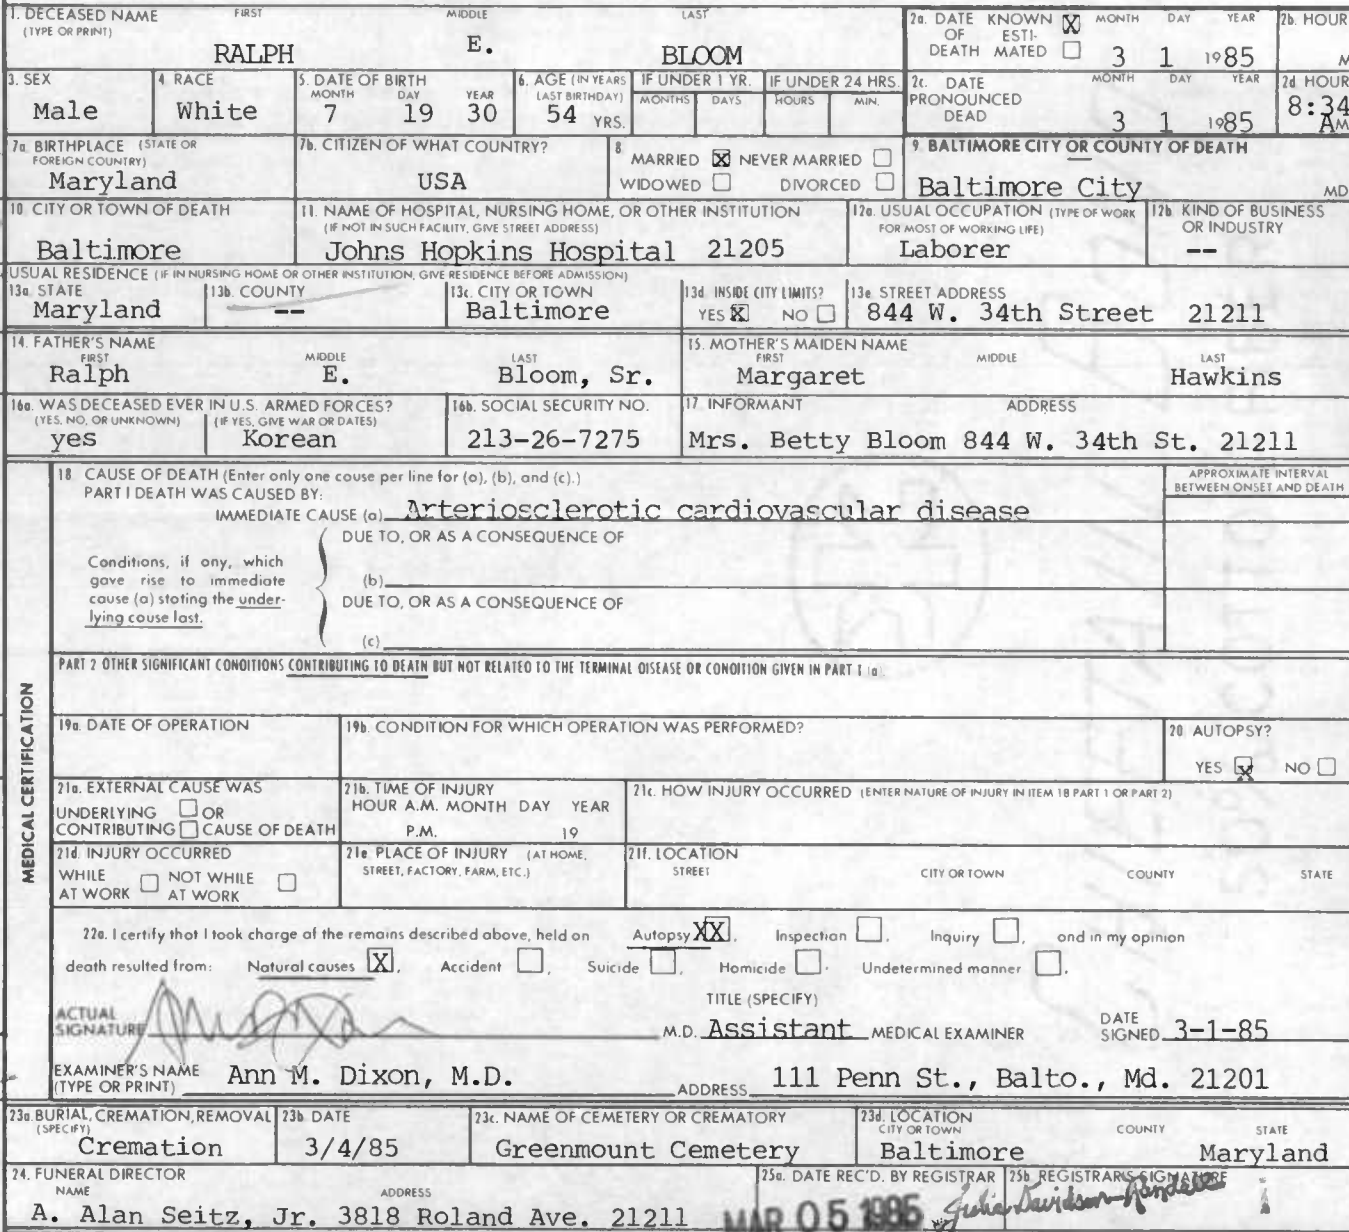 1. DECEASED NAME FIRST MIDDLE LAST
(TYPE OR PRINT)
RALPH E. BLOOM
2a. DATE KNOWN X MONTH DAY YEAR
OF ESTI-
DEATH MATED 3 1 1985
2b. HOUR
M
3. SEX
Male
4. RACE
White
5. DATE OF BIRTH
MONTH DAY YEAR
7 19 30
6. AGE (IN YEARS
LAST BIRTHDAY)
54 YRS.
IF UNDER 1 YR.
MONTHS DAYS
IF UNDER 24 HRS.
HOURS MIN.
2c. DATE MONTH DAY YEAR
PRONOUNCED
DEAD 3 1 1985
2d HOUR
8:34
AM
7a. BIRTHPLACE (STATE OR
FOREIGN COUNTRY)
Maryland
7b. CITIZEN OF WHAT COUNTRY?
USA
8
MARRIED X NEVER MARRIED
WIDOWED DIVORCED
9. BALTIMORE CITY OR COUNTY OF DEATH
Baltimore City MD
10 CITY OR TOWN OF DEATH
Baltimore
11. NAME OF HOSPITAL, NURSING HOME, OR OTHER INSTITUTION
(IF NOT IN SUCH FACILITY, GIVE STREET ADDRESS)
Johns Hopkins Hospital 21205
12a. USUAL OCCUPATION (TYPE OF WORK
FOR MOST OF WORKING LIFE)
Laborer
12b KIND OF BUSINESS
OR INDUSTRY
--
USUAL RESIDENCE (IF IN NURSING HOME OR OTHER INSTITUTION, GIVE RESIDENCE BEFORE ADMISSION)
13a. STATE
Maryland
13b. COUNTY
--
13c. CITY OR TOWN
Baltimore
13d. INSIDE CITY LIMITS?
YES X NO
13e STREET ADDRESS
844 W. 34th Street 21211
14. FATHER'S NAME
FIRST MIDDLE LAST
Ralph E. Bloom, Sr.
15. MOTHER'S MAIDEN NAME
FIRST MIDDLE LAST
Margaret Hawkins
16a. WAS DECEASED EVER IN U.S. ARMED FORCES?
(YES, NO, OR UNKNOWN) (IF YES, GIVE WAR OR DATES)
yes Korean
16b. SOCIAL SECURITY NO.
213-26-7275
17. INFORMANT ADDRESS
Mrs. Betty Bloom 844 W. 34th St. 21211
MEDICAL CERTIFICATION
18 CAUSE OF DEATH (Enter only one cause per line for (a), (b), and (c).)
PART I DEATH WAS CAUSED BY:
IMMEDIATE CAUSE (a) Arteriosclerotic cardiovascular disease
APPROXIMATE INTERVAL
BETWEEN ONSET AND DEATH
DUE TO, OR AS A CONSEQUENCE OF
Conditions, if any, which
gave rise to immediate
cause (a) stating the under-
lying cause last.
(b)
DUE TO, OR AS A CONSEQUENCE OF
(c)
PART 2 OTHER SIGNIFICANT CONDITIONS CONTRIBUTING TO DEATH BUT NOT RELATED TO THE TERMINAL DISEASE OR CONDITION GIVEN IN PART 1 (a)
19a. DATE OF OPERATION
19b. CONDITION FOR WHICH OPERATION WAS PERFORMED?
20 AUTOPSY?
YES X NO
21a. EXTERNAL CAUSE WAS
UNDERLYING OR
CONTRIBUTING CAUSE OF DEATH
21b. TIME OF INJURY
HOUR A.M. MONTH DAY YEAR
P.M. 19
21c. HOW INJURY OCCURRED (ENTER NATURE OF INJURY IN ITEM 18 PART 1 OR PART 2)
21d. INJURY OCCURRED
WHILE NOT WHILE
AT WORK AT WORK
21e PLACE OF INJURY (AT HOME,
STREET, FACTORY, FARM, ETC.)
21f. LOCATION
STREET CITY OR TOWN COUNTY STATE
22a. I certify that I took charge of the remains described above, held on Autopsy XX, Inspection , Inquiry , and in my opinion
death resulted from: Natural causes X, Accident , Suicide , Homicide . Undetermined manner .
ACTUAL
SIGNATURE
TITLE (SPECIFY)
M.D. Assistant MEDICAL EXAMINER
DATE
SIGNED 3-1-85
EXAMINER'S NAME
(TYPE OR PRINT) Ann M. Dixon, M.D.
ADDRESS 111 Penn St., Balto., Md. 21201
23a. BURIAL, CREMATION, REMOVAL
(SPECIFY)
Cremation
23b. DATE
3/4/85
23c. NAME OF CEMETERY OR CREMATORY
Greenmount Cemetery
23d. LOCATION
CITY OR TOWN COUNTY STATE
Baltimore Maryland
24. FUNERAL DIRECTOR
NAME ADDRESS
A. Alan Seitz, Jr. 3818 Roland Ave. 21211
25a. DATE REC'D. BY REGISTRAR
MAR 05 1985
25b. REGISTRAR'S SIGNATURE
Julia Davidson-Randall